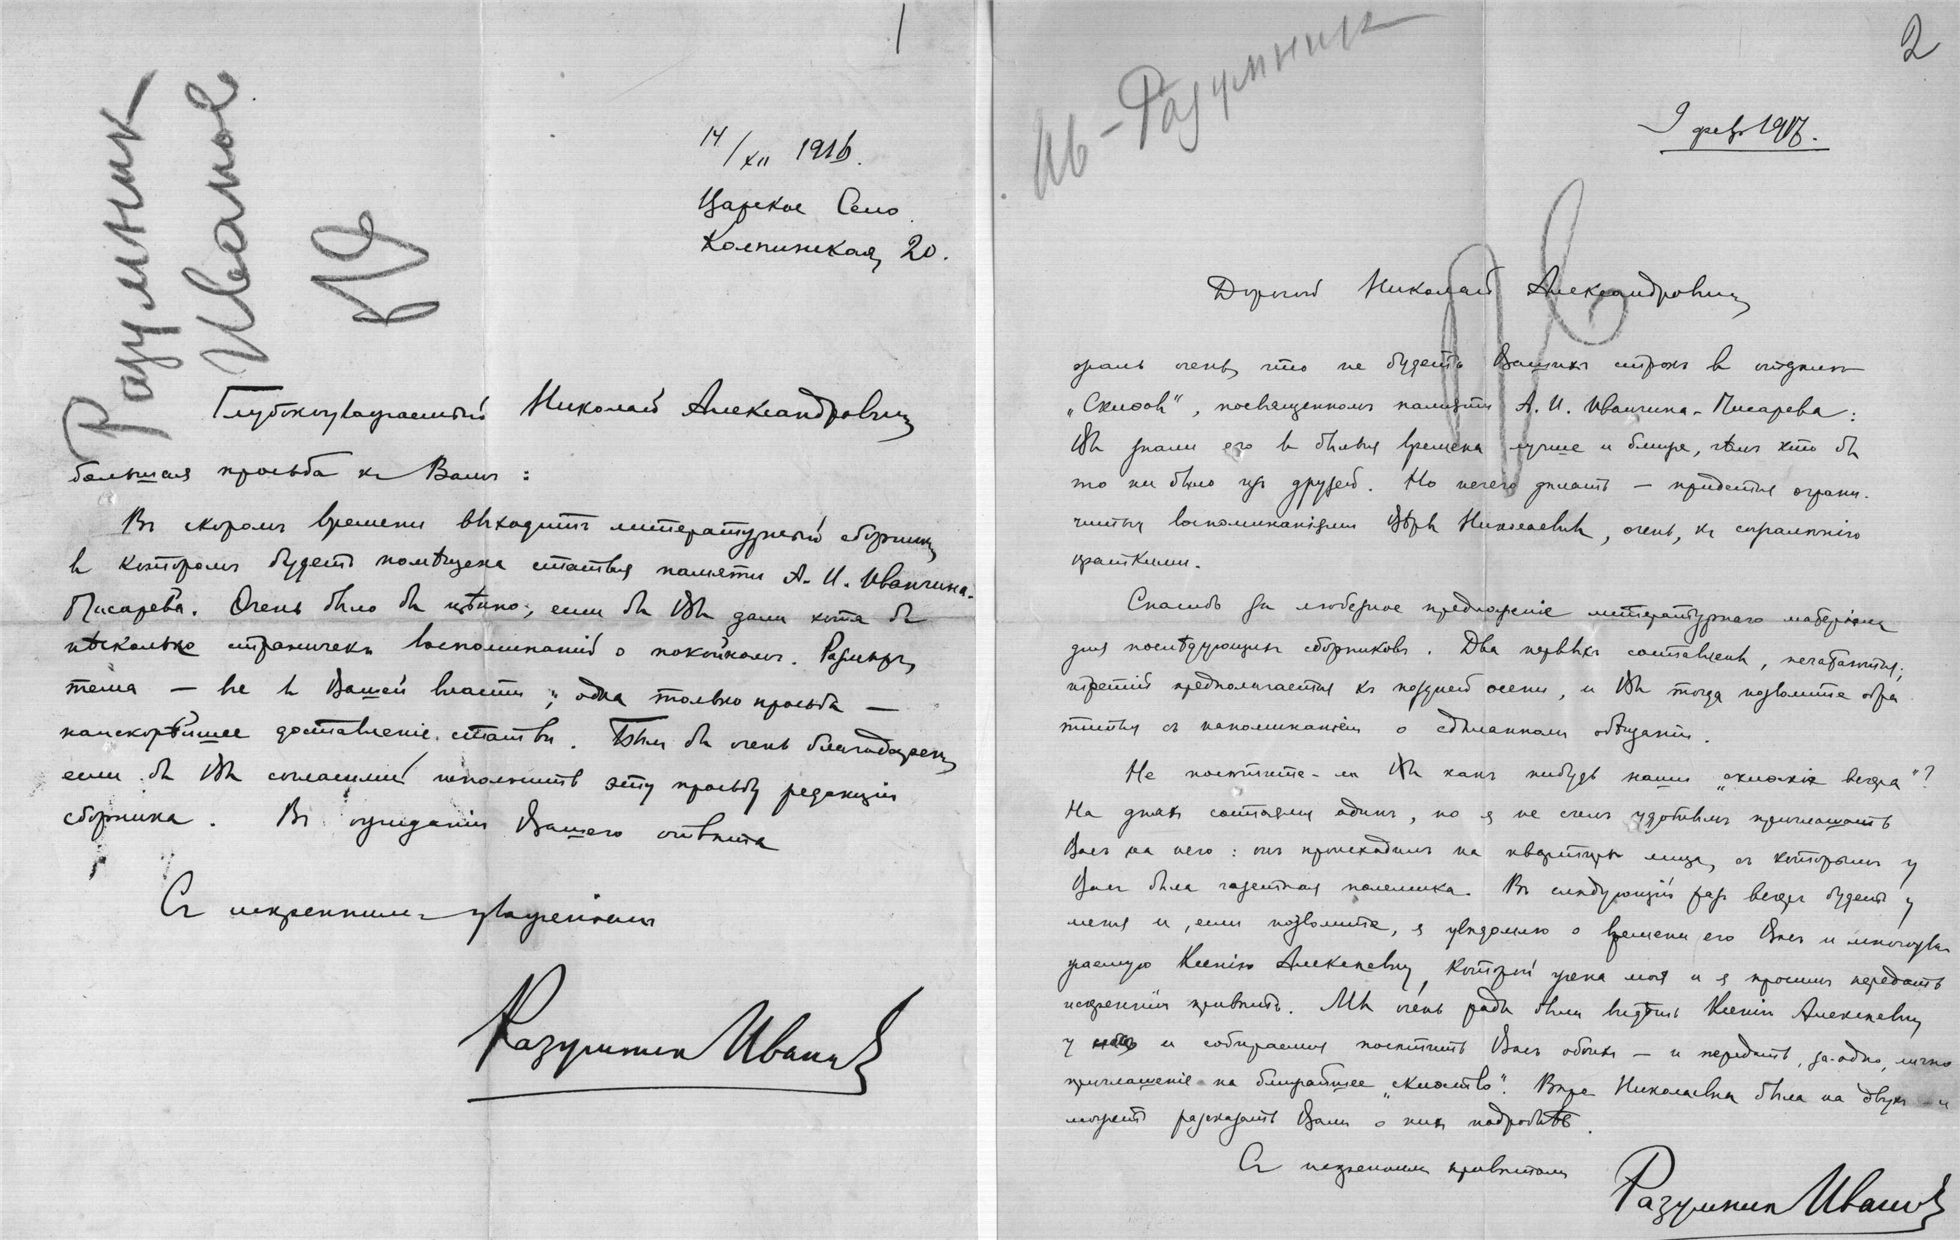 1
Разумник
Иванов
14/XII 1916.
Царское Село.
Колпинская, 20.
Глубокоуважаемый Николай Александровичъ,
большая просьба къ Вамъ:
Въ скоромъ времени выходитъ литературный сборникъ,
въ которомъ будетъ помѣщена статья памяти А. И. Иванчина-
Писарева. Очень было бы цѣнно, если бы Вы дали хотя бы
нѣсколько страничекъ воспоминаній о покойномъ. Размѣръ,
тема — все въ Вашей власти; одна только просьба —
наискорѣйшее доставленіе статьи. Былъ бы очень благодаренъ,
если бы Вы согласились исполнить эту просьбу редакціи
сборника. Въ ожиданіи Вашего отвѣта
Съ искреннимъ уваженіемъ
Разумникъ Ивановъ
2
Ив-Разумник
9 февр. 1917.
Дорогой Николай Александровичъ,
жаль очень, что не будетъ Вашихъ строкъ въ отдѣлѣ
„Скиѳовъ“, посвященномъ памяти А. И. Иванчина-Писарева:
Вы знали его въ былыя времена лучше и ближе, чѣмъ кто бы
то ни было изъ друзей. Но нечего дѣлать — придется ограни-
читься воспоминаніями Вѣры Николаевны, очень, къ сожалѣнію
краткими.
Спасибо за любезное предложеніе литературнаго матеріала
для послѣдующихъ сборниковъ. Два первыхъ составлены, печатаются;
третій предполагается къ поздней осени, и Вы тогда позволите обра-
титься съ напоминаніемъ о сдѣланномъ обѣщаніи.
Не посѣтите-ли Вы какъ нибудь наши „скиѳскіе вечера“?
На дняхъ состоялся одинъ, но я не счелъ удобнымъ приглашать
Васъ на него: онъ происходилъ на квартирѣ лица, съ которымъ у
Васъ была газетная полемика. Въ слѣдующій разъ вечеръ будетъ у
меня и, если позволите, я увѣдомлю о времени его Васъ и многоува-
жаемую Ксенію Алексѣевну, которой жена моя и я просимъ передать
искренній привѣтъ. Мы очень рады были видѣть Ксенію Алексѣевну
у и собираемся посѣтить Васъ обоихъ — и передать, за-одно, лично
приглашеніе на ближайшее „скиѳство“. Вѣра Николаевна была на двухъ — и
можетъ разсказать Вамъ о нихъ подробнѣе.
Съ искреннимъ привѣтомъ
Разумникъ Ивановъ